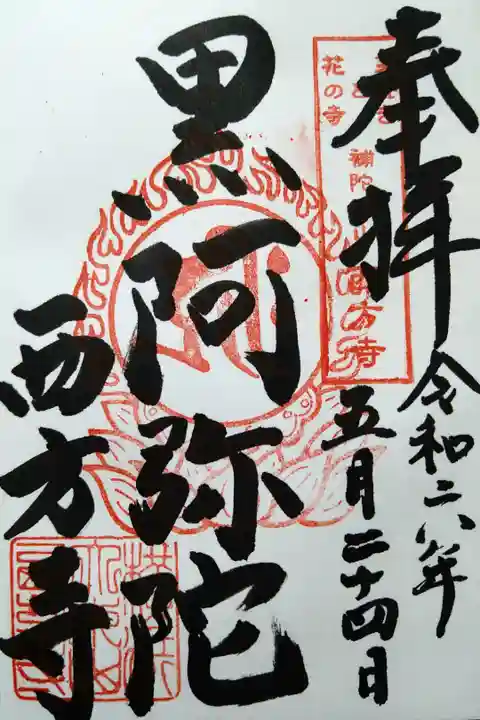 奉拝
令和六年
五月二十四日
花の寺
補陀
西方寺
黒阿弥陀
西方寺